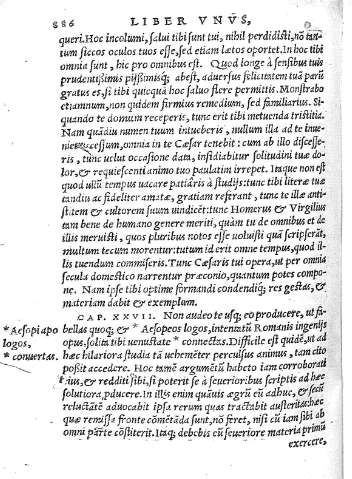 886 LIBER VNVS,
queri. Hoc incolumi, salui tibi sunt tui, nihil perdidisti, nō tan-
tum siccos oculos tuos esse, sed etiam lætos oportet. In hoc tibi
omnia sunt, hic pro omnibus est. Quod longè à sensibus tuis
prudentißimis pijßimisq; abest, aduersus felicitatem tuā parū
gratus es, si tibi quicquā hoc saluo flere permittis. Monstrabo
etiamnum, non quidem firmius remedium, sed familiarius. Si-
quando te domum receperis, tunc erit tibi metuenda tristitia.
Nam quādiu numen tuum intueberis, nullum illa ad te inue-
niet accessum, omnia in te Cæsar tenebit: cum ab illo discesse-
ris, tunc uelut occasione data, insidiabitur solitudini tuæ do-
lor, & requiescenti animo tuo paulatim irrepet. Itaque non est
quod ullū tempus uacare patiaris à studijs: tunc tibi literæ tuæ
tandiu ac fideliter amatæ, gratiam referant, tunc te illæ anti-
stitem & cultorem suum uindicēt: tunc Homerus & Virgilius
tam bene de humano genere meriti, quàm tu de omnibus et de
illis meruisti, quos pluribus notos esse uoluisti quā scripserāt,
multum tecum morentur: tutum id erit omne tempus, quod il-
lis tuendum commiseris. Tunc Cæsaris tui opera, ut per omnia
secula domestico narrentur præconio, quantum potes compo-
ne. Nam ipse tibi optime formandi condendiq; res gestas, &
materiam dabit & exemplum.
CAP. XXVII. Non audeo te usq; eo producere, ut fa-
bellas quoq; & * Aesopeos logos, intentatū Romanis ingenijs
opus, solita tibi uenustate * connectas. Difficile est quidē, ut ad
hæc hilariora studia tā uehemēter perculsus animus, tam cito
poßit accedere. Hoc tamē argumētū habeto iam corroborati
eius, et redditi sibi, si poterit se à seuerioribus scriptis ad hæc
solutiora, pducere. In illis enim quāuis ægrū eū adhuc, & secū
reluctātē aduocabit ipsa rerum quas tractabit austeritas: hæc
quæ remissa fronte cōmētāda sunt, nō feret, nisi cū iam sibi ab
omni parte cōstiterit. Itaq; debebis eū seueriore materia primū
exercere,
* Aesopi apo
logos,
* conuertas.